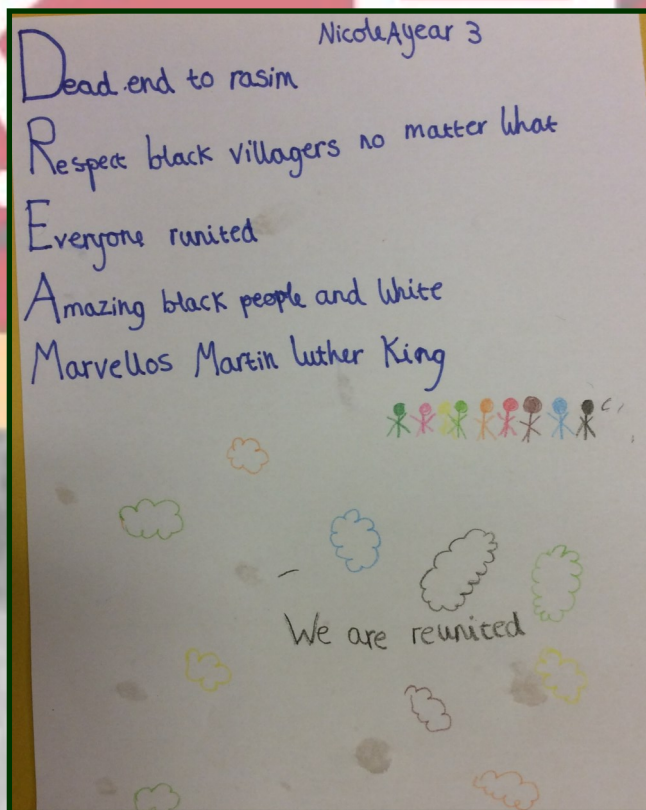 NicoleAyear 3
Dead.end to rasim
Respect black villagers no matter what
Everyone runited
Amazing black people and white
Marvellos Martin luther King
We are reunited